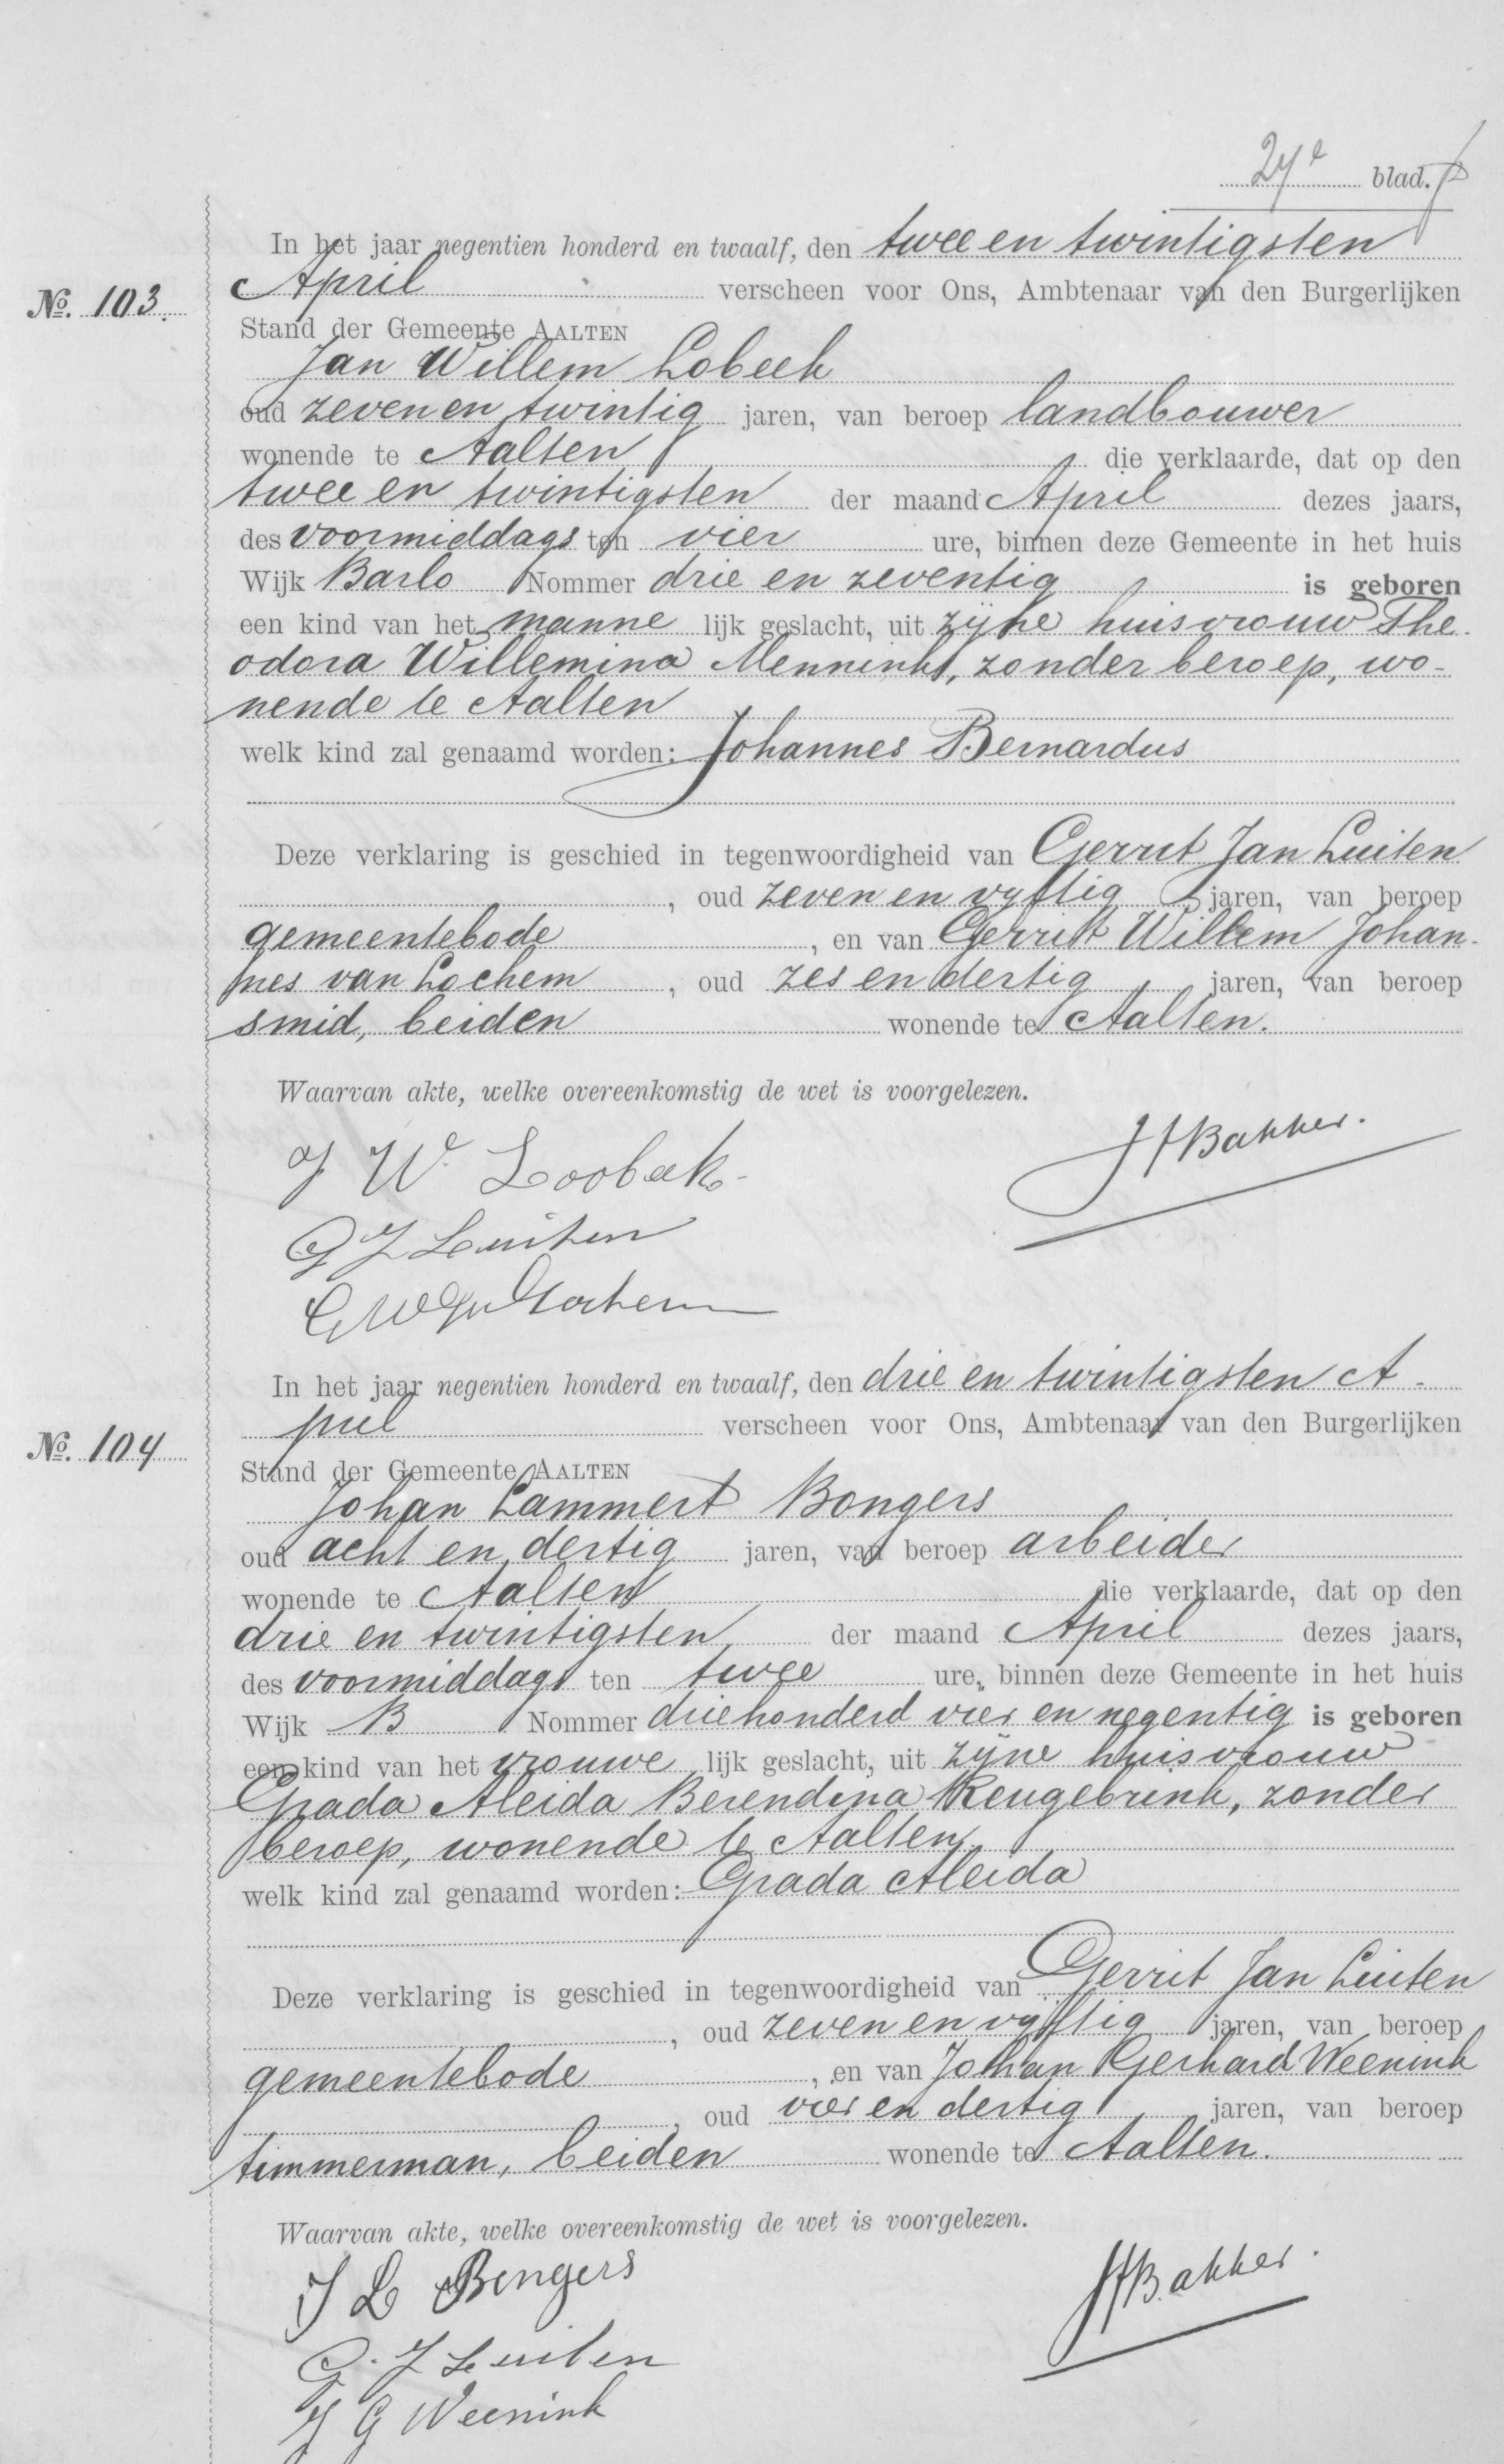 27e blad.
In het jaar negentien honderd en twaalf, den twee en twintigsten
No. 103. April verscheen voor Ons, Ambtenaar van den Burgerlijken
Stand der Gemeente AALTEN
Jan Willem Lobeek
oud zeven en twintig jaren, van beroep landbouwer
wonende te Aalten die verklaarde, dat op den
twee en twintigsten der maand April dezes jaars,
des voormiddags ten vier ure, binnen deze Gemeente in het huis
Wijk Barlo Nommer drie en zeventig is geboren
een kind van het manne lijk geslacht, uit zijne huisvrouw The-
odora Willemina Mennink, zonder beroep, wo-
nende te Aalten
welk kind zal genaamd worden: Johannes Bernardus
Deze verklaring is geschied in tegenwoordigheid van Gerrit Jan Luiten
, oud zeven en vyftig jaren, van beroep
gemeentebode, en van Gerrit Willem Johan-
nes van Lochem, oud zes en dertig jaren, van beroep
smid, beiden wonende te Aalten.
Waarvan akte, welke overeenkomstig de wet is voorgelezen.
J W. Loobeek JHBakker.
G J Luiten
G W J v Lochem
In het jaar negentien honderd en twaalf, den drie en twintigsten A-
No. 104 pril verscheen voor Ons, Ambtenaar van den Burgerlijken
Stand der Gemeente AALTEN
Johan Lammert Bongers
oud acht en dertig jaren, van beroep arbeider
wonende te Aalten die verklaarde, dat op den
drie en twintigsten der maand April dezes jaars,
des voormiddags ten twee ure, binnen deze Gemeente in het huis
Wijk B Nommer driehonderd vier en negentig is geboren
een kind van het vrouwe lijk geslacht, uit zijne huisvrouw
Grada Aleida Berendina Rengebrink, zonder
beroep, wonende te Aalten,
welk kind zal genaamd worden: Grada Aleida
Deze verklaring is geschied in tegenwoordigheid van Gerrit Jan Luiten
, oud zeven en vyftig jaren, van beroep
gemeentebode, en van Johan Gerhard Weenink
, oud vier en dertig jaren, van beroep
timmerman, beiden wonende te Aalten.
Waarvan akte, welke overeenkomstig de wet is voorgelezen.
J L Bongers JHBakker.
G. J Luiten
J G Weenink